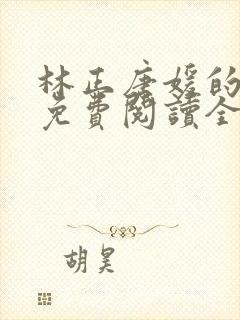 林正唐媛的
免費閱讀全
胡昊